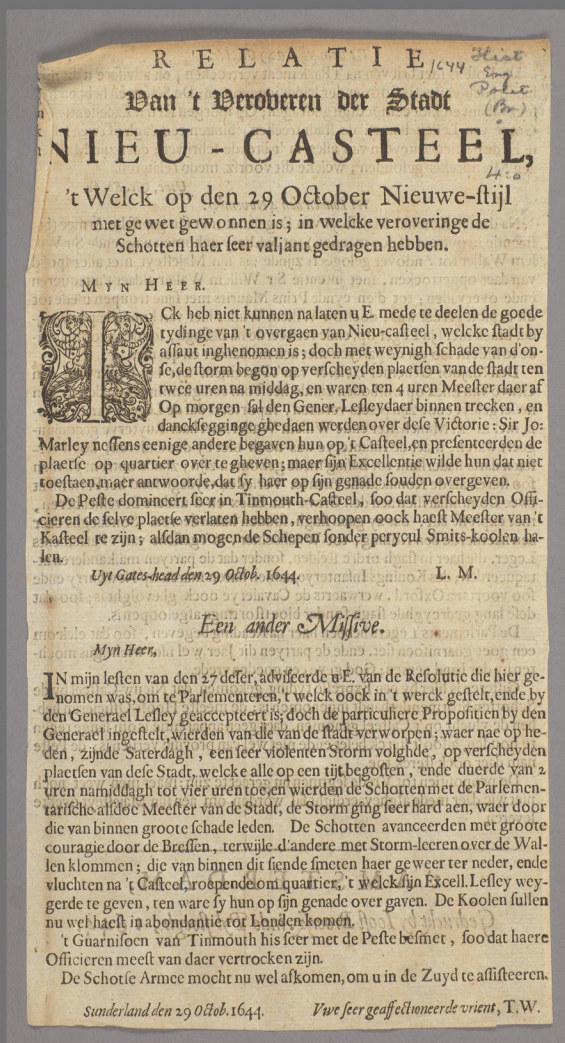 RELATIE
Van 't Veroveren der Stadt
NIEU-CASTEEL,
't Welck op den 29 October Nieuwe-stijl
met gewet gewonnen is; in welcke veroveringe de
Schotten haer seer valjant gedragen hebben.
1644 Hist
Eng
Polit
(Br)
4:o
MYN HEER.
ICk heb niet kunnen nalaten u E. mede te deelen de goede
tydinge van 't overgaen van Nieu-casteel, welcke stadt by
assaut inghenomen is; doch met weynigh schade van d'on-
se, de storm begon op verscheyden plaetsen van de stadt ten
twee uren na middag, en waren ten 4 uren Meester daer af
Op morgen sal den Gener. Lesley daer binnen trecken, en
dancksegginge ghedaen werden over dese Victorie: Sir Jo:
Marley neffens eenige andere begaven hun op 't Casteel, en presenteerden de
plaetse op quartier over te gheven; maer sijn Excellentie wilde hun dat niet
toestaen, maer antwoorde, dat sy haer op sijn genade souden overgeven.
De Peste domineert seer in Tinmouth-Casteel, soo dat verscheyden Offi-
cieren de selve plaetse verlaten hebben, verhoopen oock haest Meester van 't
Kasteel te zijn; alsdan mogen de Schepen sonder perycul Smits-koolen ha-
len.
Uyt Gates-head den 29 Octob. 1644. L. M.
Een ander Missive.
Myn Heer,
IN mijn lesten van den 27 deser, adviseerde u E. van de Resolutie die hier ge-
nomen was, om te Parlementeren, 't welck oock in 't werck gestelt, ende by
den Generael Lesley geaccepteert is; doch de particuliere Propositien by den
Generael ingestelt, wierden van die van de stadt verworpen; waer nae op he-
den, zijnde Saterdagh, een seer violenten Storm volghde, op verscheyden
plaetsen van dese Stadt, welcke alle op een tijt begosten, ende duerde van 2
uren namiddagh tot vier uren toe, en wierden de Schotten met de Parlemen-
tarische alsdoe Meester van de Stadt, de Storm ging seer hard aen, waer door
die van binnen groote schade leden. De Schotten avanceerden met groote
couragie door de Bressen, terwijle d'andere met Storm-leeren over de Wal-
len klommen; die van binnen dit siende smeten haer geweer ter neder, ende
vluchten na 't Casteel, roepende om quartier, 't welck sijn Excell. Lesley wey-
gerde te geven, ten ware sy hun op sijn genade over gaven. De Koolen sullen
nu wel haest in abondantie tot Londen komen.
't Guarnisoen van Tinmouth his seer met de Peste besmet, soo dat haere
Officieren meest van daer vertrocken zijn.
De Schotse Armee mocht nu wel afkomen, om u in de Zuyd te assisteeren.
Sunderland den 29 Octob. 1644. Vwe seer geaffectioneerde vrient, T.W.